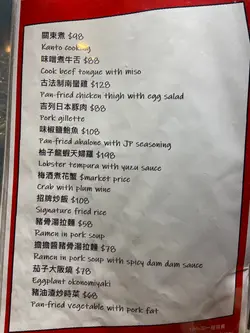 關東煮 $98
Kanto cooking
味噌煮牛舌 $88
Cook beef tongue with miso
古法制南蠻雞 $128
Pan-fried chicken thigh with egg salad
吉列日本豚肉 $88
Pork gillette
味椒鹽鮑魚 $108
Pan-fried abalone with JP seasoning
柚子龍蝦天婦羅 $198
Lobster tempura with yuzu sauce
梅酒煮花蟹 $market price
Crab with plum wine
招牌炒飯 $108
Signature fried rice
豬骨湯拉麵 $78
Ramen in pork soup
擔擔醬豬骨湯拉麵 $78
Ramen in pork soup with spicy dam dam sauce
茄子大阪燒 $78
Eggplant okonomiyaki
豬油渣炒時菜 $68
Pan-fried vegetable with pork fat